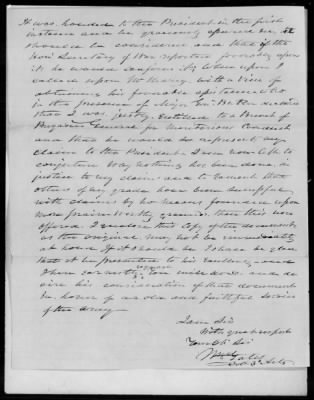 It was handed to the President in the first
instance and he graciously assured me it
should be considered and that if the
Hon Secretary of War reported favorably upon
it he would confirm it, Whereupon I
called upon Mr Marcy, with a view of
obtaining his favorable
in the presence of Major Genl he declared
that I was justly entitled to a Brevet of
Brigadier General for Meritorious Conduct
and that he would so represent my
claim to the President. I am now left to
conjecture why nothing has been done in
justice to my claim and to lament that
others of my grade have been successful
with claims by no means founded upon
more praiseworthy grounds than this now
offered. I enclose this Copy of the document
as the original may not be immediately
at hand. If it should be, I shall be glad
that it be presented to his Excellency, and
I have earnestly to and de
sire his consideration of the document
in honor of an old and faithful Soldier
of the Army.
I am Sir
With great respect
Your Obt Sir
Wm Gates
Col 3d Arty